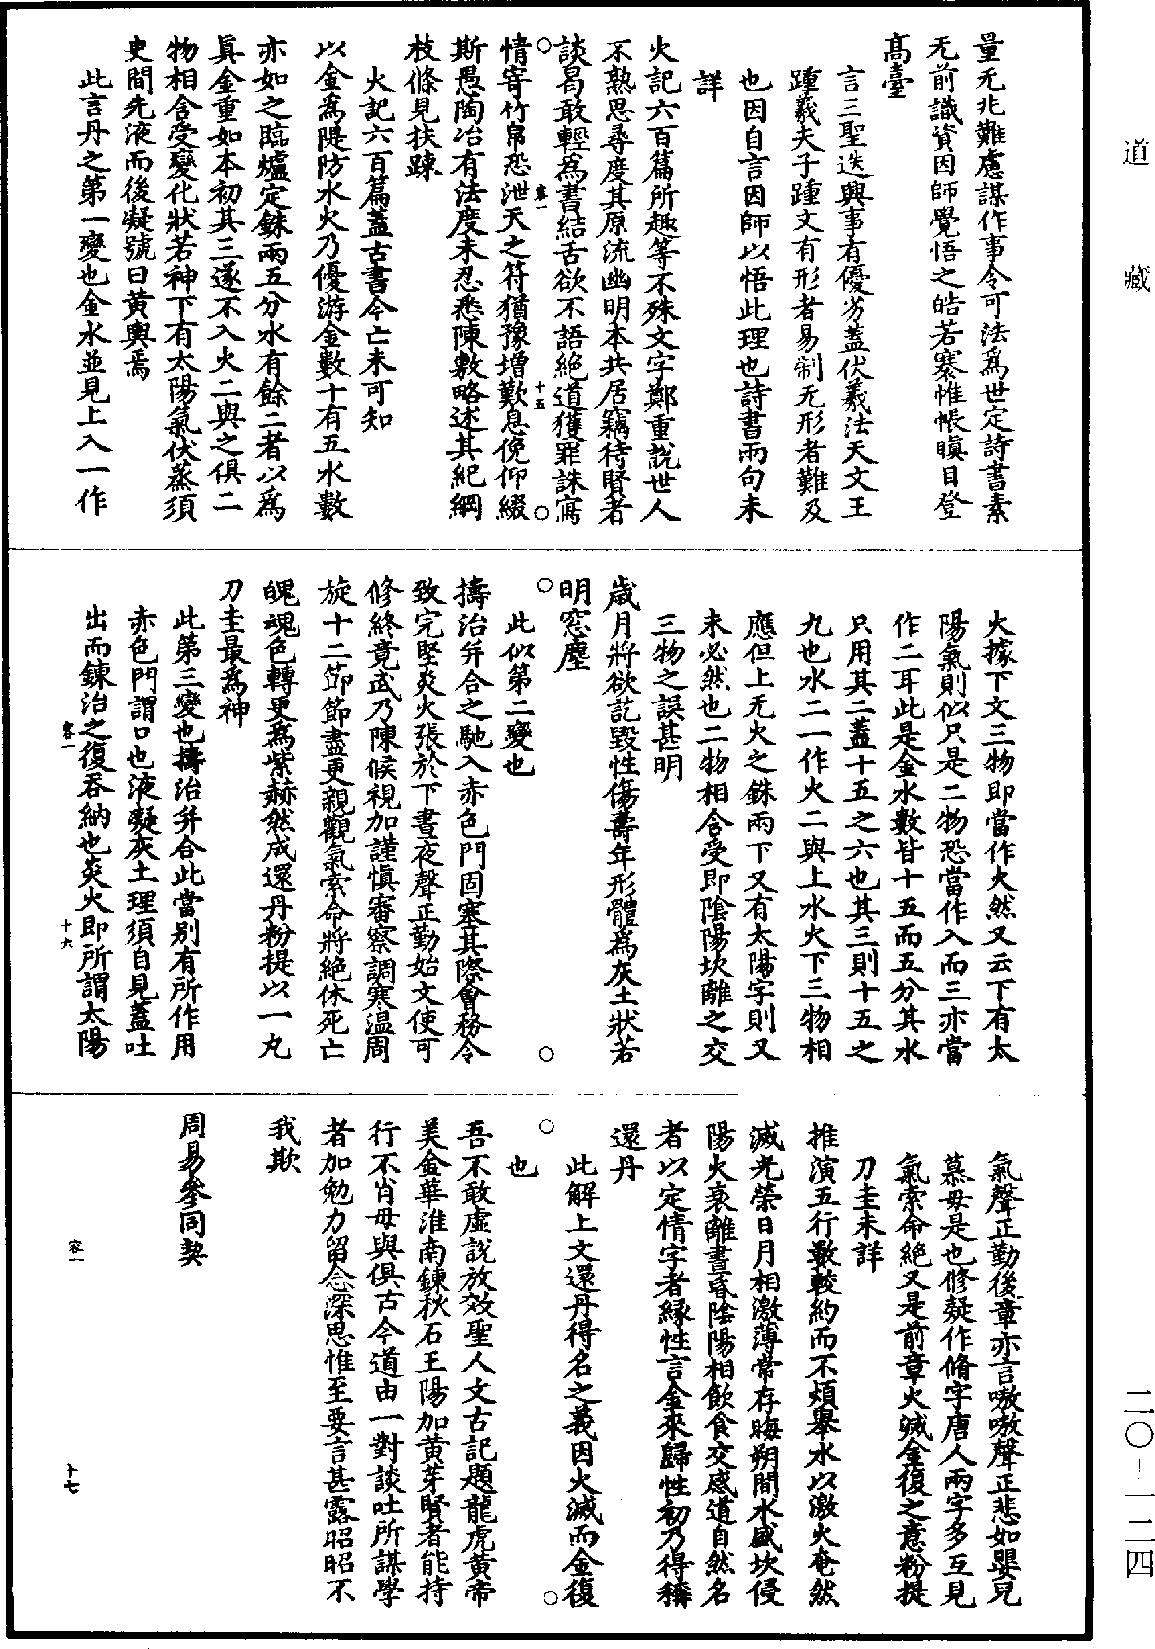 道藏
量无兆難慮謀作事令可法爲世定詩書素
无前識資因師覺悟之皓若褰帷帳瞋目登
高臺
言三聖迭興事有優劣蓋伏羲法天文王
踵羲夫子踵文有形者易制无形者難及
也因自言因師以悟此理也詩書兩句未
詳
火記六百篇所趣等不殊文字鄭重說世人
不熟思尋度其原流幽明本共居竊待賢者
談曷敢輕爲書結舌欲不語絕道獲罪誅寫
容一 十五
情寄竹帛恐泄天之符猶豫增歎息俛仰綴
斯愚陶冶有法度未忍悉陳敷略述其紀綱
枝條見扶踈
火記六百篇蓋古書今亡未可知
以金爲隄防水火乃優游金數十有五水數
亦如之臨爐定銖兩五分水有餘二者以爲
眞金重如本初其三遂不入火二與之俱二
物相含受變化狀若神下有太陽氣伏蒸須
史間先液而後凝號曰黃輿焉
此言丹之第一變也金水並見上入一作
火據下文三物即當作火然又云下有太
陽氣則似只是二物恐當作入而三亦當
作二耳此是金水數皆十五而五分其水
只用其二蓋十五之六也其三則十五之
九也水二一作火二與上水火下三物相
應但上无火之銖兩下又有太陽字則又
未必然也二物相含受即陰陽坎離之交
三物之誤甚明
歲月將欲訖毀性傷壽年形體爲灰土狀若
明窓塵
此似第二變也
擣治并合之馳入赤色門固塞其際會務令
致完堅炎火張於下晝夜聲正勤始文使可
修終竟武乃陳候視加謹愼審察調寒温周
旋十二節節盡更親觀氣索命將絕休死亡
魄魂色轉更爲紫赫然成還丹粉提以一丸
刀圭最爲神
此第三變也擣治并合此當別有所作用
赤色門謂口也液凝灰土理須自見蓋吐
出而鍊治之復吞納也炎火即所謂太陽
容一 十六
氣聲正勤後章亦言嗷嗷聲正悲如嬰兒
慕母是也修疑作脩字唐人兩字多互見
氣索命絕又是前章火滅金復之意粉提
刀圭未詳
推演五行數較約而不煩舉水以激火奄然
滅光榮日月相激薄常存晦朔間水盛坎侵
陽火衰離晝昏陰陽相飲食交感道自然名
者以定情字者緣性言金來歸性初乃得稱
還丹
此解上文還丹得名之義因火滅而金復
也
吾不敢虛說放效聖人文古記題龍虎黃帝
美金華淮南鍊秋石王陽加黃芽賢者能持
行不肖毋與俱古今道由一對談吐所謀學
者加勉力留念深思惟至要言甚露昭昭不
我欺
周易參同契
容一 十七
二〇-一二四